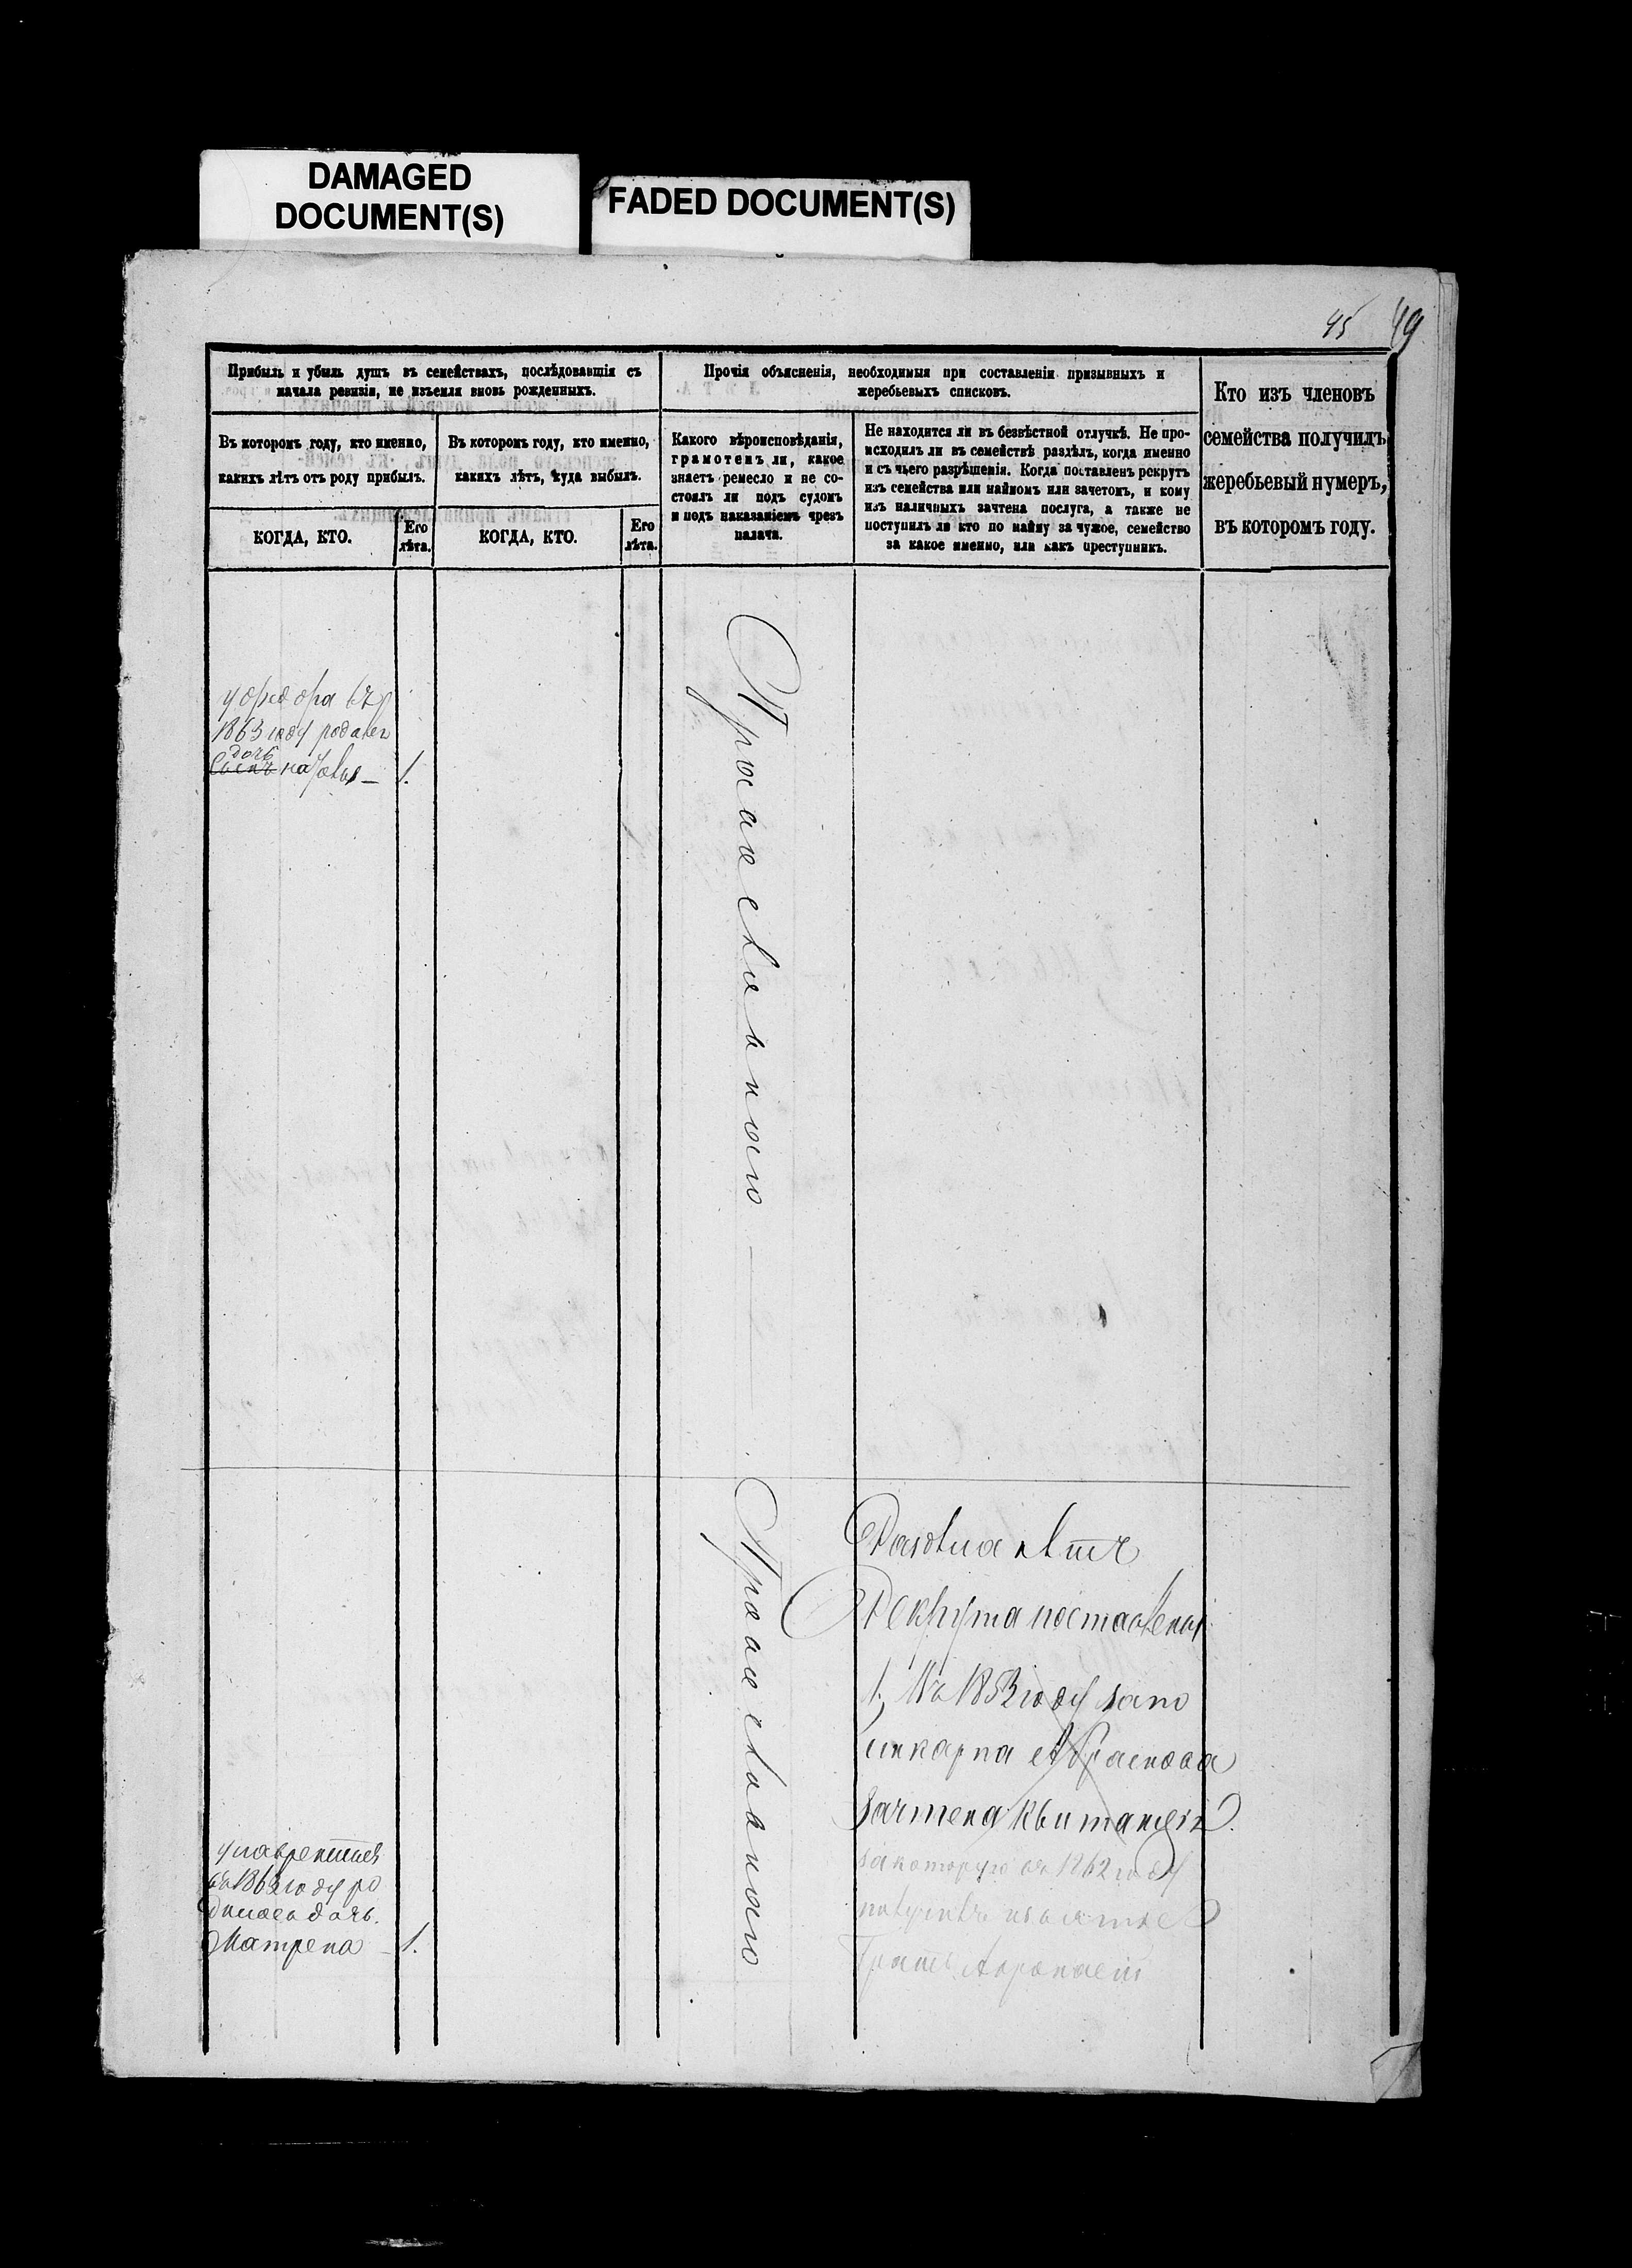 DAMAGED
DOCUMENT(S)
FADED DOCUMENT(S)
45 49
Прибыль и убыль душъ въ семействахъ, послѣдовавшія съ
начала ревизіи, не изъемля вновь рожденныхъ.
Прочія объясненія, необходимыя при составленіи призывныхъ и
жеребьевыхъ списковъ.
Кто изъ членовъ
семейства получилъ
жеребьевый нумеръ,
въ которомъ году.
Въ которомъ году, кто именно,
какихъ лѣтъ отъ роду прибылъ.
Въ которомъ году, кто именно,
какихъ лѣтъ, куда выбылъ.
Какого вѣроисповѣданія,
грамотенъ ли, какое
знаетъ ремесло и не со-
стоялъ ли подъ судомъ
и подъ наказаніемъ чрезъ
палача.
Не находится ли въ безвѣстной отлучкѣ. Не про-
исходилъ ли въ семействѣ раздѣлъ, когда именно
и съ чьего разрѣшенія. Когда поставленъ рекрутъ
изъ семейства или наймомъ или зачетомъ, и кому
изъ наличныхъ зачтена послуга, а также не
поступилъ ли кто по найму за чужое, семейство
за какое именно, или какъ преступникъ.
КОГДА, КТО.
Его
лѣта.
КОГДА, КТО.
Его
лѣта.
у Федора въ
1863 году родилс
дочь
Сынъ 1.
Православнаго
Православнаго
Раздела нѣтъ
Рекрута поставлены
1, Въ 1853 году за по
зачтена квитанція
за которую въ 1862 году
у Лаврентия
въ 1863 году ро
дилась дочь.
Матрена – 1.